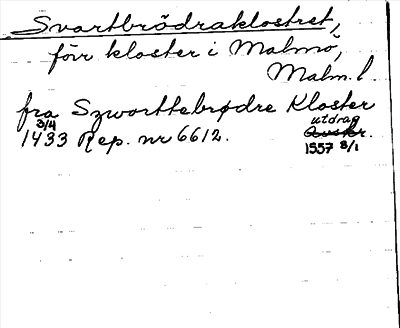 Svartbrödraklostret,
förr kloster i Malmö,
Malm. l.
fra Szworttebrødre Kloster
3/4 1433 Rep. nr 6612. utdrag
1557 8/1